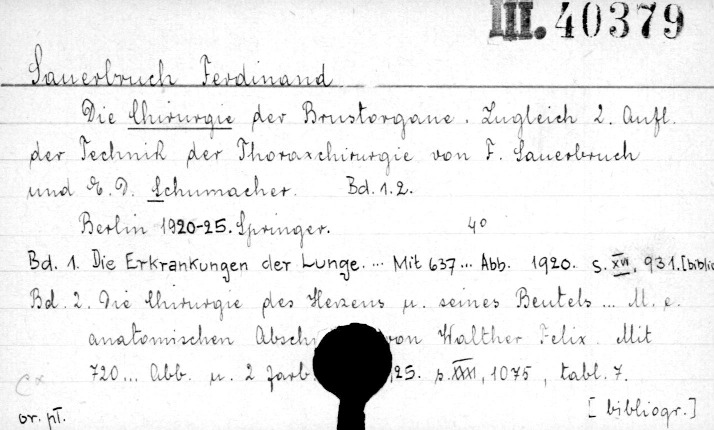 III. 40379
Sauerbruch Ferdinand
Die Chirurgie der Brustorgane. Zugleich 2. Aufl.
der Technik der Thoraxchirurgie von F. Sauerbruch
und E. D. Schumacher. Bd. 1.2.
Berlin 1920-25. Springer. 4º
Bd. 1. Die Erkrankungen der Lunge. ... Mit 637 ... Abb. 1920. s. XVI, 931. [biblio
Bd. 2. Die Chirurgie des Herzens u. seines Beutels ... M. e.
anatomischen Absch von Walther Felix. Mit
720 ... Abb. u. 2 farb. 25. s. XXXI, 1075, tabl. 7.
or. pł. [bibliogr.]